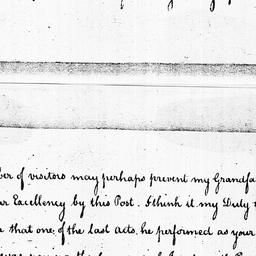 ber of visitors may perhaps prevent my Grandfa
ur Excellency by this Post. I think it my Duty
that one of the last acts, he performed as your